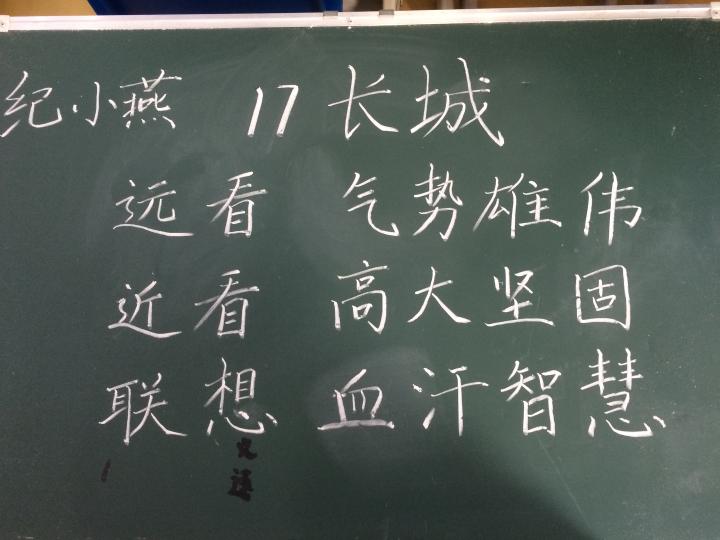 纪小燕 17 长城
远看 气势雄伟
近看 高大坚固
联想 血汗智慧